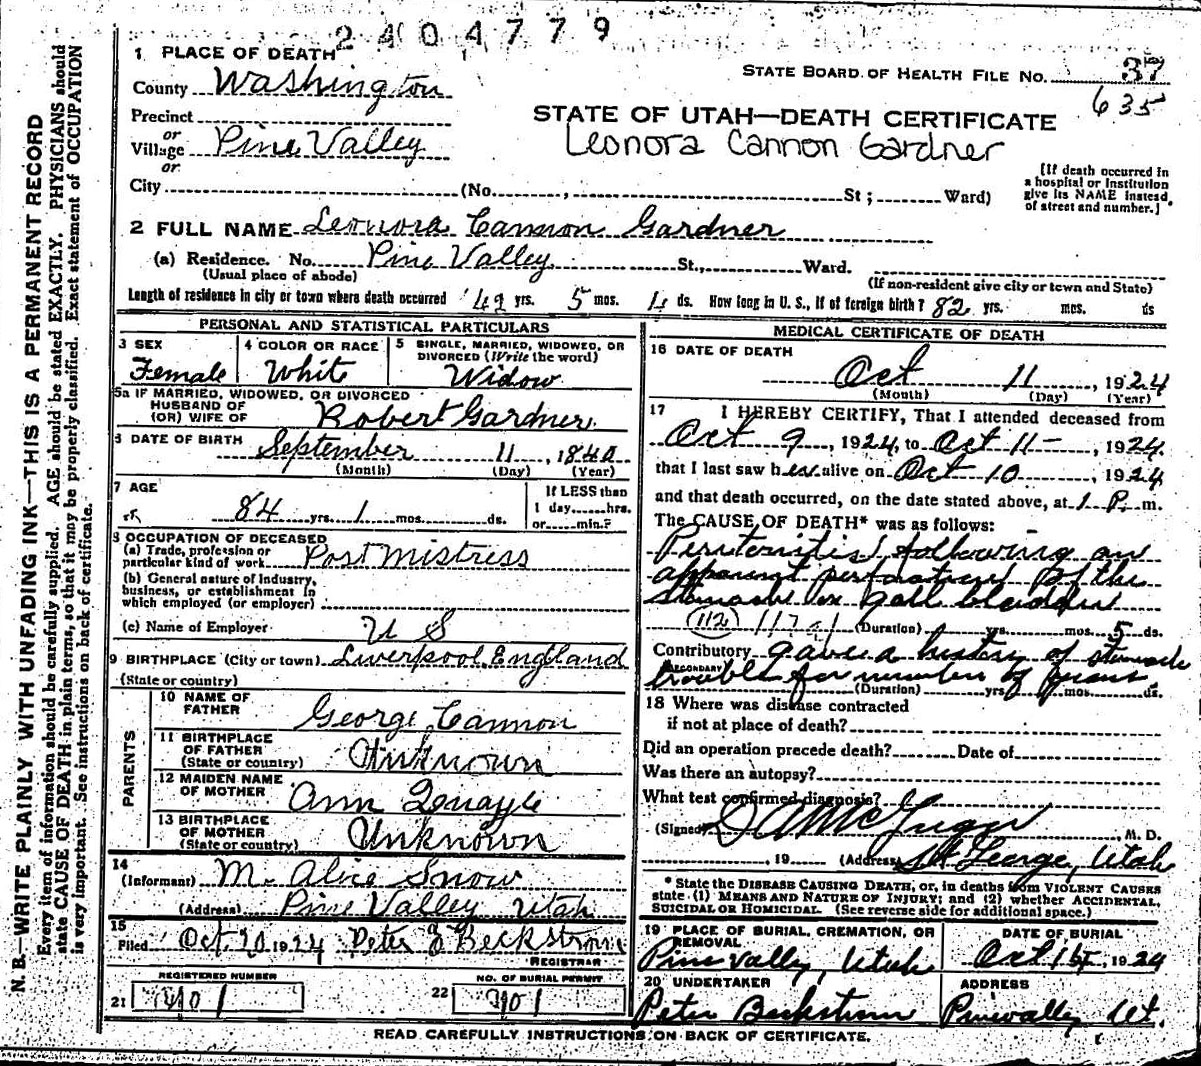 2404779
1 PLACE OF DEATH
STATE BOARD OF HEALTH FILE No. 37
635
County Washington
STATE OF UTAH—DEATH CERTIFICATE
Leonora Cannon Gardner
Precinct
or
Village Pine Valley
or
City (No. , St ; Ward)
[If death occurred in
a hospital or institution
give its NAME instead
of street and number.]
2 FULL NAME Leonora Cannon Gardner
(a) Residence. No. Pine Valley St., Ward.
(Usual place of abode)
(If non-resident give city or town and State)
Length of residence in city or town where death occurred 49 yrs. 5 mos. 4 ds. How long in U. S., if of foreign birth? 82 yrs. mos. ds
PERSONAL AND STATISTICAL PARTICULARS
3 SEX
Female
4 COLOR OR RACE
White
5 SINGLE, MARRIED, WIDOWED, OR
DIVORCED (Write the word)
Widow
5a IF MARRIED, WIDOWED, OR DIVORCED
HUSBAND OF
(OR) WIFE OF Robert Gardner
6 DATE OF BIRTH September 11, 1840
(Month) (Day) (Year)
7 AGE
84 yrs. 1 mos. ds.
If LESS than
1 day hrs.
or min.?
8 OCCUPATION OF DECEASED
(a) Trade, profession or
particular kind of work Post Mistress
(b) General nature of industry,
business, or establishment in
which employed (or employer)
(c) Name of Employer U S
9 BIRTHPLACE (City or town) Liverpool England
(State or country)
PARENTS
10 NAME OF
FATHER George Cannon
11 BIRTHPLACE
OF FATHER
(State or country) Unknown
12 MAIDEN NAME
OF MOTHER Ann Quayle
13 BIRTHPLACE
OF MOTHER
(State or country) Unknown
14
(Informant) M. Alice Snow
(Address) Pine Valley Utah
15
Filed Oct. 20 1924 Peter E Beckstrom
REGISTRAR
REGISTERED NUMBER
21
NO. OF BURIAL PERMIT
22
MEDICAL CERTIFICATE OF DEATH
16 DATE OF DEATH
Oct 11, 1924
(Month) (Day) (Year)
17 I HEREBY CERTIFY, That I attended deceased from
Oct 9, 1924, to Oct 11-, 1924
that I last saw her alive on Oct 10, 1924
and that death occurred, on the date stated above, at 1 P. m.
The CAUSE OF DEATH* was as follows:
Peritonitis following an
apparent perforation of the
stomach or gall bladder
112 (Duration) yrs. mos. 5 ds.
Contributory gave a history of stomach
SECONDARY
trouble for number of years
(Duration) yrs. mos. ds.
18 Where was disease contracted
if not at place of death?
Did an operation precede death? Date of
Was there an autopsy?
What test confirmed diagnosis?
(Signed) M. D.
, 19 (Address) St George, Utah
* State the DISEASE CAUSING DEATH, or, in deaths from VIOLENT CAUSES
state (1) MEANS AND NATURE OF INJURY; and (2) whether ACCIDENTAL,
SUICIDAL OR HOMICIDAL. (See reverse side for additional space.)
19 PLACE OF BURIAL, CREMATION, OR
REMOVAL
Pine Valley, Utah
DATE OF BURIAL
Oct 1924
20 UNDERTAKER
Peter Beckstrom
ADDRESS
Pinevalley Ut.
READ CAREFULLY INSTRUCTIONS ON BACK OF CERTIFICATE.
N. B.—WRITE PLAINLY WITH UNFADING INK—THIS IS A PERMANENT RECORD
Every item of information should be carefully supplied. AGE should be stated EXACTLY. PHYSICIANS should
state CAUSE OF DEATH in plain terms, so that it may be properly classified. Exact statement of OCCUPATION
is very important. See instructions on back of certificate.